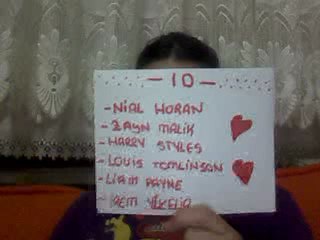 - 1D -
- NİAL HORAN
- ZAYN MALİK
- HARRY STYLES
- LOUİS TOMLİNSON
- LİAM PAYNE